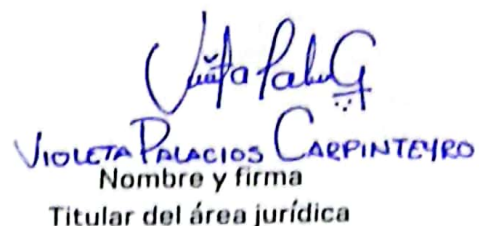 VIOLETA PALACIOS CARPINTEYRO
Nombre y firma
Titular del área jurídica